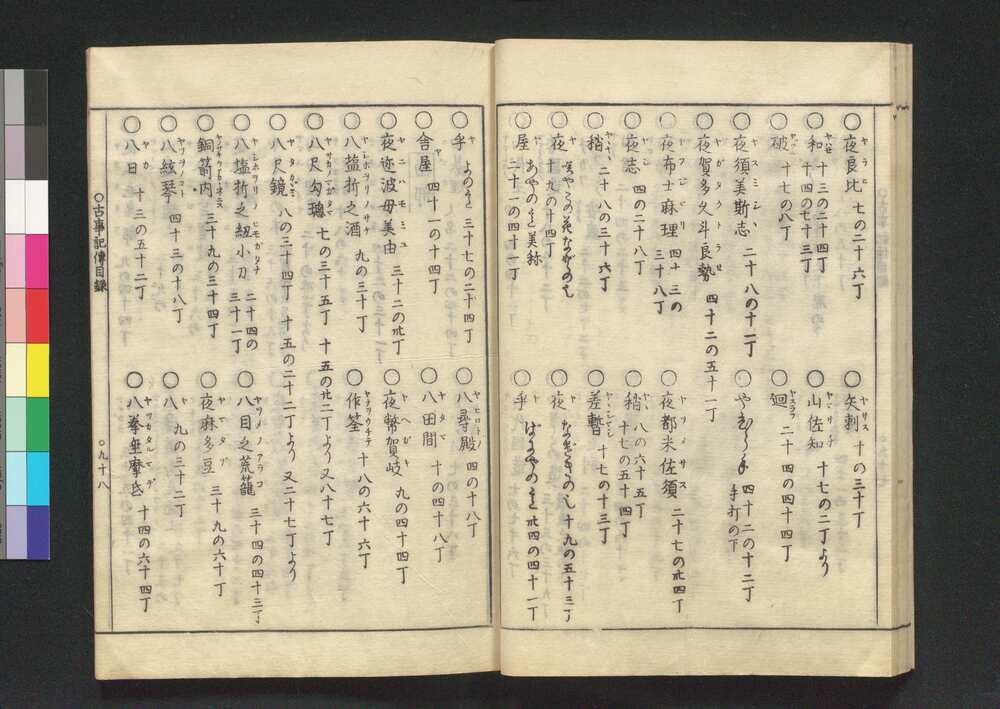 ○夜良比 七の二十六丁
○矢刺 十の三十丁
○和 十三の二十四丁 十四の七十三丁
○山佐知 十七の二丁より
○破 十七の八丁
○廻 二十四の四十四丁
○夜須美斯志 二十八の十二丁
四十二の十二丁 手打の下
○夜賀多久斗良勢 四十二の五十一丁
○夜布士麻理 四十三の三十八丁
○夜都米佐須 二十七の卅四丁
○夜志 四の二十八丁
○稍 八の六十五丁 十七の五十四丁
○稍 二十八の三十六丁
○差暫 十七の十三丁
○夜 十九の十四丁
○夜 十九の五十三丁
○屋 二十一の四十一丁
○乎 卅四の四十一丁
○乎 三十七の二十四丁
○八尋殿 四の十八丁
○舎屋 四十一の十四丁
○八田間 十の四十八丁
○夜迩波母美由 三十二の卅丁
○夜幣賀岐 九の四十四丁
○八塩折之酒 九の三十丁
○作筌 十八の六十六丁
○八尺勾璁 七の三十五丁 十五の卅二丁より又八十七丁
○八尺鏡 八の三十四丁 十五の二十二丁より又二十七丁より
○八塩折之紐小刀 二十四の三十一丁
○八目之荒籠 三十四の四十三丁
○銅箭内 三十九の三十四丁
○夜麻多豆 三十九の六十丁
○八絃琴 四十三の十八丁
○八 九の三十二丁
○八日 十三の五十二丁
○八拳垂摩弖 十四の六十四丁
○古事記傳目録
○九十八